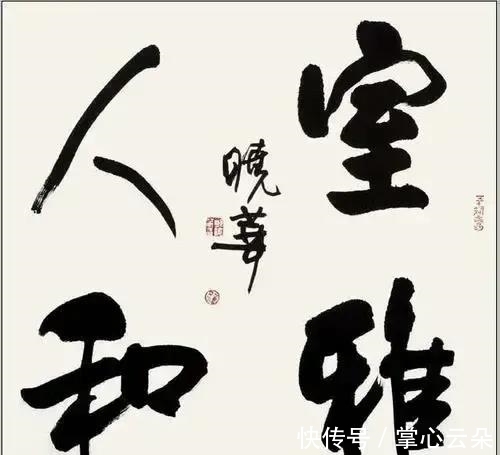 室雅
人和
曉華
快传号 / 掌心云朵